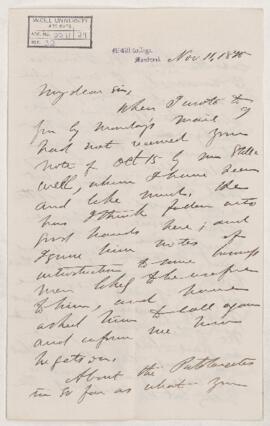 McGILL UNIVERSITY
ARCHIVES
ACC. NO. 2211/29
REF. 32
McGill College
Montreal
Nov 11, 18
My dear Sir,
When I wrote to
you by Monday's mail I
had not received your
note of Oct 15 by Mr
whom I have seen
and like much. He
has I think fallen into
good hands here; and
I gave him notes of
introduction to some
men likely to be of use
to him, and have
asked him to call again
and inform me how
he gets on.
About the
in so far as what you